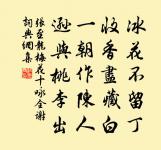 冰花不留丁
收香盡藏白
一朝作陳人
遜與桃李出
張至龍梅花十咏全謝
詞典網集